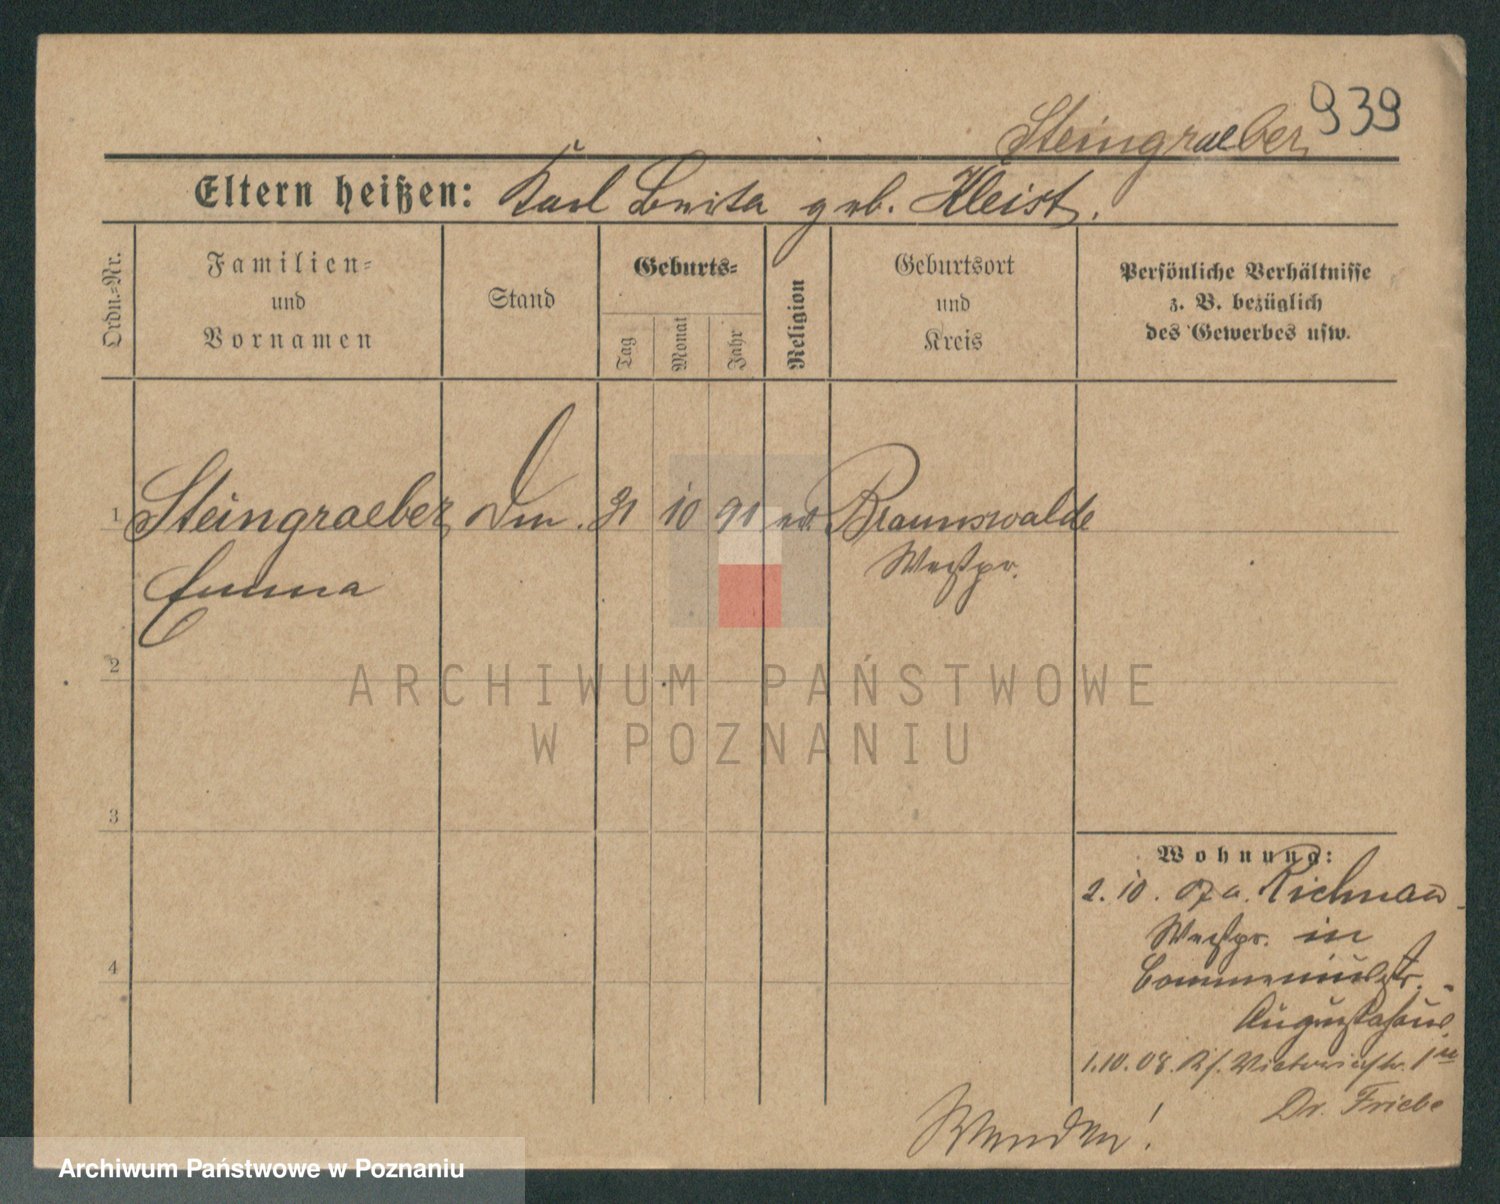 939
Steingraeber
Eltern heißen: Karl Luisa geb. Kleist.
Ordn.=Nr.
Familien=
und
Vornamen
Stand
Geburts=
Tag
Monat
Jahr
Religion
Geburtsort
und
Kreis
Persönliche Verhältnisse
z. B. bezüglich
des Gewerbes usw.
1
Steingraeber
31 10 91 ev. Braunswalde
Emma
Westpr.
2
ARCHIWUM PAŃSTWOWE
W POZNANIU
3
4
Wohnung:
2. 10. 07 a. Richnau
Westpr. in
Commeniusstr.
Augustahaus
1.10.08. Kf. Victoriastr.
Dr. Friebe
Wenden!
Archiwum Państwowe w Poznaniu